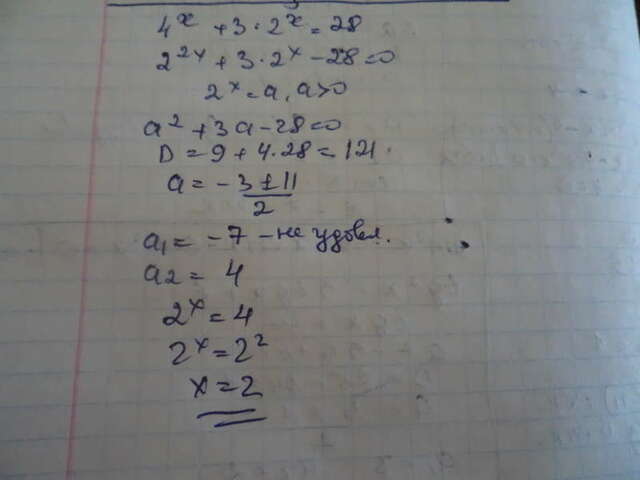 4^x + 3 · 2^x = 28
2^2x + 3 · 2^x - 28 = 0
2^x = a, a > 0
a^2 + 3a - 28 = 0
D = 9 + 4 · 28 = 121
a = -3 ± 11 / 2
a1 = -7 - не удовл.
a2 = 4
2^x = 4
2^x = 2^2
x = 2